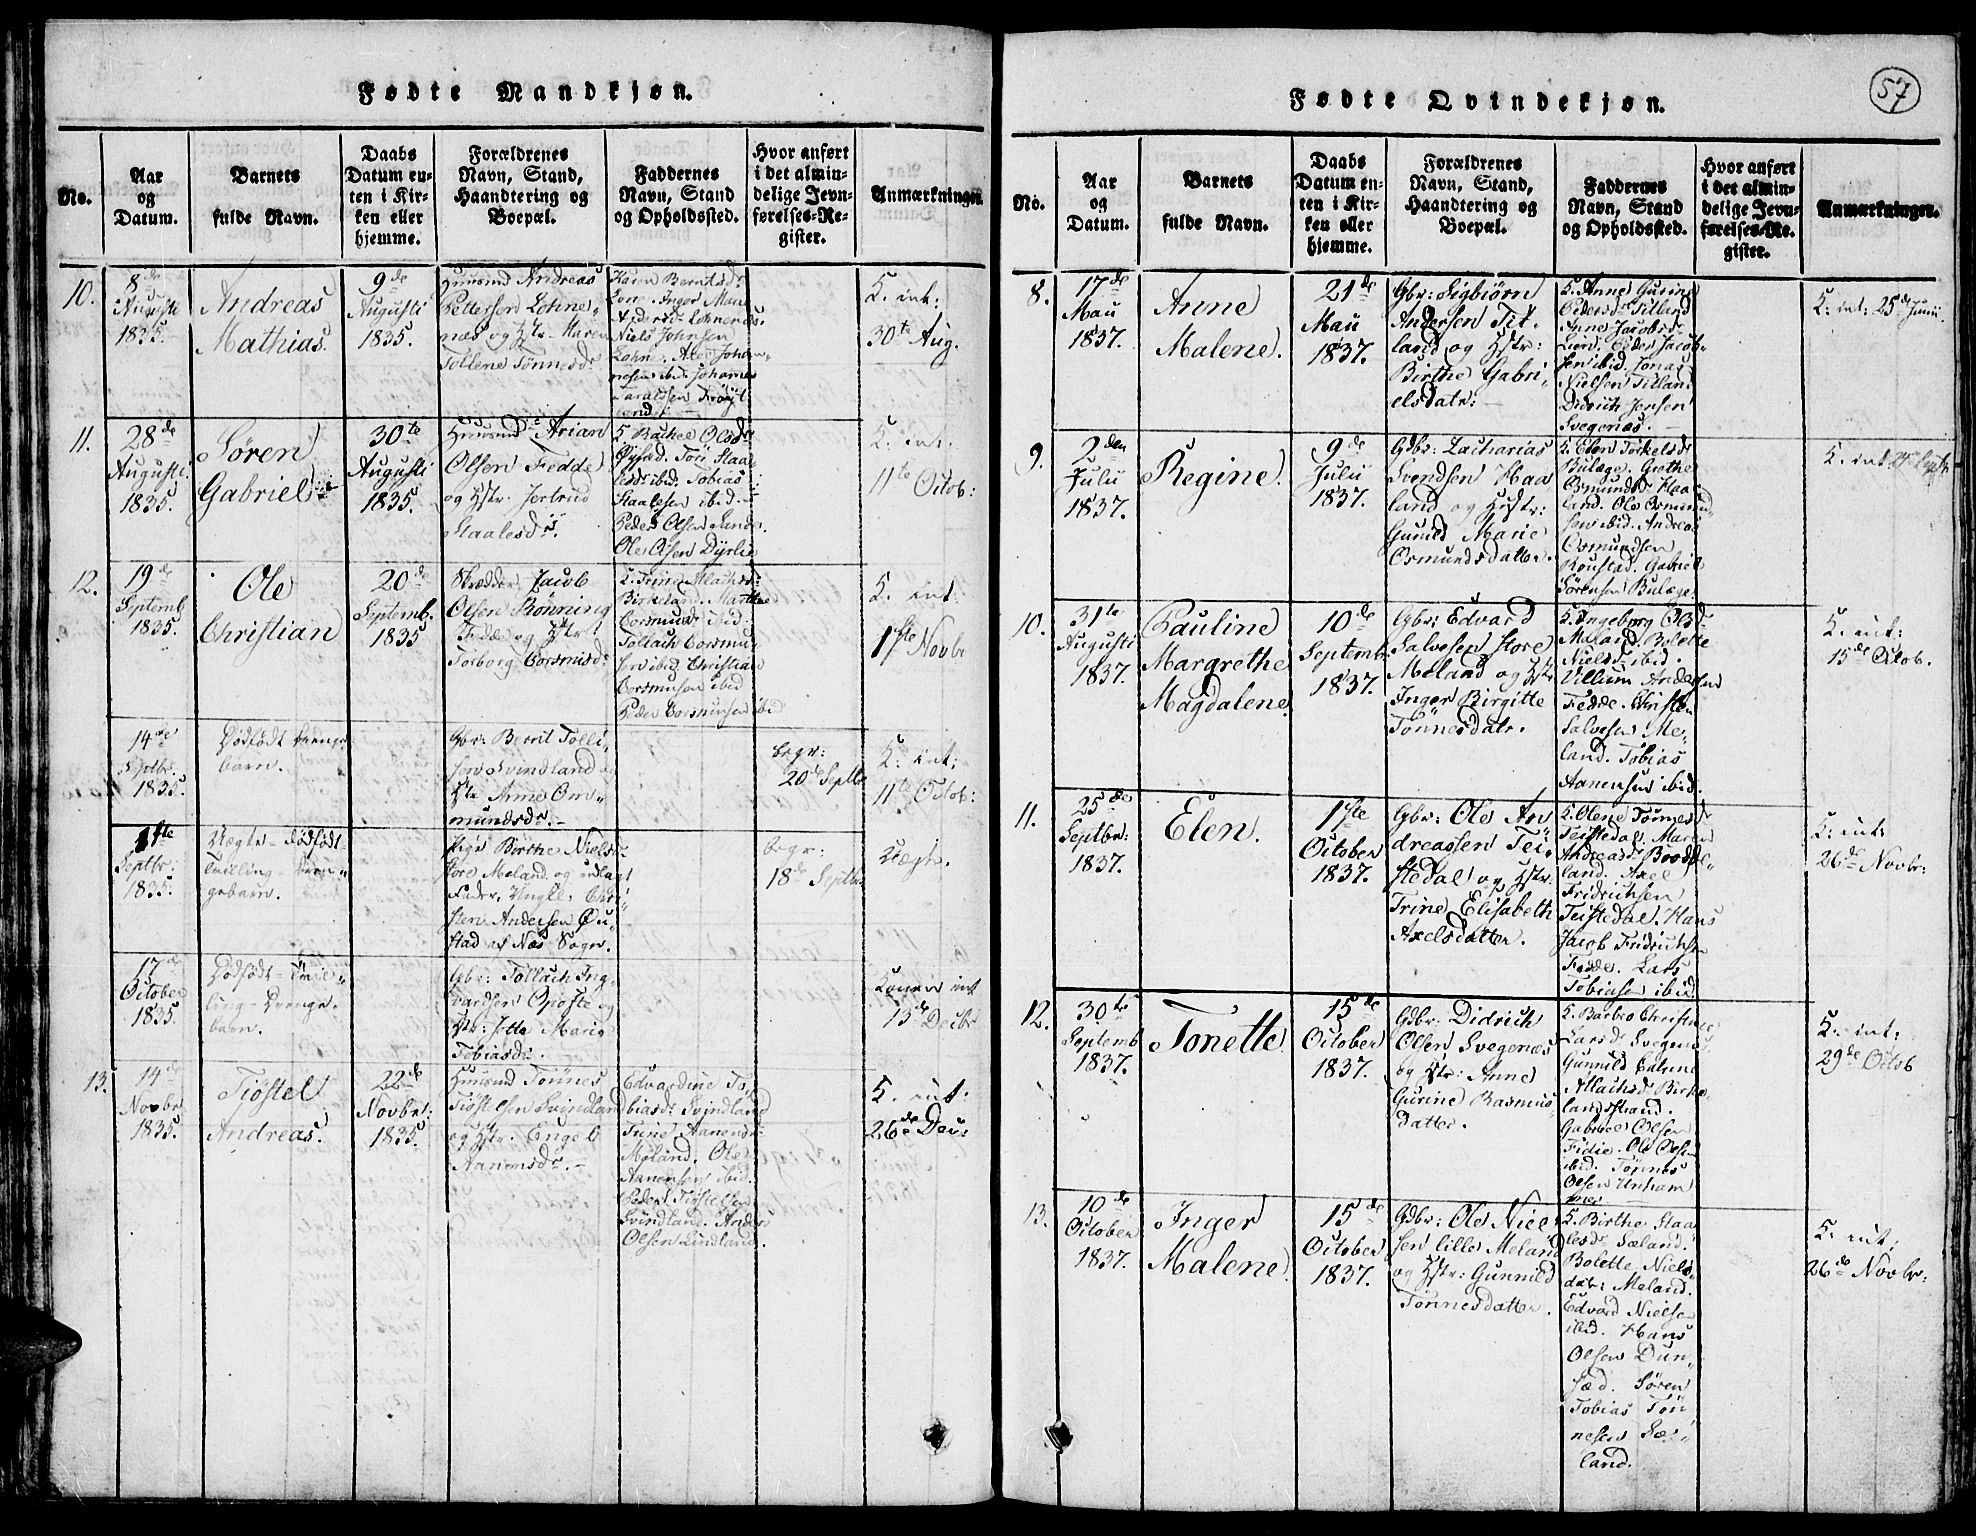 Fødte Mandkjøn.
No.
Aar
og
Datum.
Barnets
fulde Navn.
Daabs
Datum en-
ten i Kir-
ken eller
hjemme.
Forældrenes
Navn, Stand,
Haandtering og
Boepæl.
Faddernes
Navn, Stand
og Opholdssted.
Hvor anført
i det almin-
delige Jevn-
førelses-Re-
gister.
Anmærkninger.
10.
8de
Augusti
1835.
Andreas
Mathias.
9de
Augusti
1835.
Huusmd Andreas
Pettersen Lohne-
næs og Hstr. Maren
Tollene Tønnesdr
Karen Berntsdr
Niels Johnsen
K. int:
30te Aug.
11.
28de
Augusti
1835.
Søren
Gabriel
30te
Augusti
1835.
Huusmd Arian
Olsen Fedde
og Hstr. Jortrud
Staalesdr.
Tobias
Staalesen ibid.
Peder Olsen
Ole Olsen Dyrlie
K. int:
11te Octob:
12.
19de
Septemb.
1835.
Ole
Christian
20de
Septemb.
1835
Skrædder Jacob
Olsen Rønning
Fedde og Hstr
Torborg Corsmisdr
Birkeland. Marthe
Corsmunsdr ibid.
Tollach Corsmun-
sen ibid Christian
Corsmunsen ibid
Peder Corsmunsen ibid
K. int:
1ste Novbr
14de
Septbr.
1835.
Dødfødt Drenge-
barn.
Gbr: Bernt Tolli-
sen Svindland og
Hstr Anne Om-
mundsdr.
begr:
20de Septbr
K. int:
11te Octob:
1ste
Septbr.
1835.
Uægte dødfødt
Tvilling-Dren-
gebarn.
Pige Birthe Nielsdr
Store Meland og udlagt
Fader, Ungk: Chri-
sten Andersen Øu-
stad af Næs Sogn.
begr:
18de Septbr
Uægte.
17de
October
1835.
Dødfødt-Tvil-
ling-Drenge-
barn.
Gbr: Tollach Ing-
vardsen Opofte og
Hstr: Jette Marie
Tobiasdr.
Konen int
13de Decbr
13.
14de
Novbr
1835.
Tiøstel
Andreas.
22de
Novbr:
1835.
Huusmd Tønnes
Tiøstelsen Svindland
og Hstr. Engel
Aanensdr.
Edvardine To-
biasdr Svindland
Trine Aanensdr
Meland. Ole
Aanensen ibid.
Peder Tiøstelsen
Svindland. Anders
Olsen Lindland.
K. int:
26de Dec:
Fødte Qvindekjøn.
57
No.
Aar
og
Datum.
Barnets
fulde Navn.
Daabs
Datum en-
ten i Kir-
ken eller
hjemme.
Forældrenes
Navn, Stand,
Haandtering og
Boepæl.
Faddernes
Navn, Stand
og Opholdsted.
Hvor anført
i det almin-
delige Jevn-
førelses-Re-
gister.
Anmærkninger.
8.
17de
Maii
1837.
Anne
Malene.
21de
Maii
1837.
Gbr: Sigbiørn
Andersen Tit-
land og Hstr:
Birthe Gabri-
elsdatr:
K. Anne Gurine
Pedersdr Titland
Anne Jacobsdr
Lien. Peder Jacob-
sen ibid. Jonas
Nielsen Titland
Didrich Jensen
Svegenæs.
K: int: 25de Junii
9.
2den
Julii
1837.
Regine.
9de
Julii
1837.
Gdbr: Zacharias
Svendsen Haa-
land og Hustr:
Gunild Marie
Osmundsdatter.
K. Elen Torkelsdr
Bulæge. Grethe
Osmundsdr Haa-
land. Ole Osmund-
sen ibid. Andreas
Osmundsen
Roustad. Gabriel
Sørensen Bulæge.
K. int. 24de Septbr
10.
31te
Augusti
1837.
Pauline
Margrethe
Magdalene.
10de
Septemb.
1837.
Gbr: Edvard
Salvesen Store
Meland og Hstr
Inger Birgitte
Tønnesdatr.
K. Ingeborg Olsdr
Meland. Bolette
Nielsdr ibid.
Villum Andersen
Fedde. Christen
Salvesen Me-
land. Tobias
Aanensen ibid.
K. int:
15de Octob.
11.
25de
Septbr:
1837.
Elen.
1ste
October
1837.
Gbr: Ole An-
dreassen Tei-
stedal og Hstr.
Trine Elisabeth
Axelsdatter.
K. Olene Tønnesdr
Teistedal. Maren
Andreasdr Boddel-
land. Axel
Fridrichsen
Teistedal. Hans
Jacob Fridrichsen
Fedde. Lars
Tobiasen ibid.
K: int:
26de Novbr:
12.
30te
Septemb
1837.
Tonette.
15de
October
1837.
Gdbr: Didrich
Olsen Svegenæs
og Hstr: Anne
Gurine Rasmus-
datter.
K. Barbro Christine
Larsdr Svegenæs
Gunnild Caline
Atlachsdr Birke-
landsstrand.
Gabriel Olsen
Fidie. Ole Olsen
ibid. Tønnes
Olsen Unham-
mer.
K. int:
29de Octob
13.
10de
October
1837.
Inger
Malene.
15de
October
1837.
Gdbr: Ole Niel-
sen lille Meland
og Hstr: Gunnild
Tønnesdatter.
K. Birthe Staa-
lesdr Sæland.
Bolette Niels-
datr Meland.
Edvard Nielsen
ibid. Hans
Olsen Dun-
sæd. Søren
Tobias Tøn-
nesen Sæ-
land.
K. int:
26de Novbr: